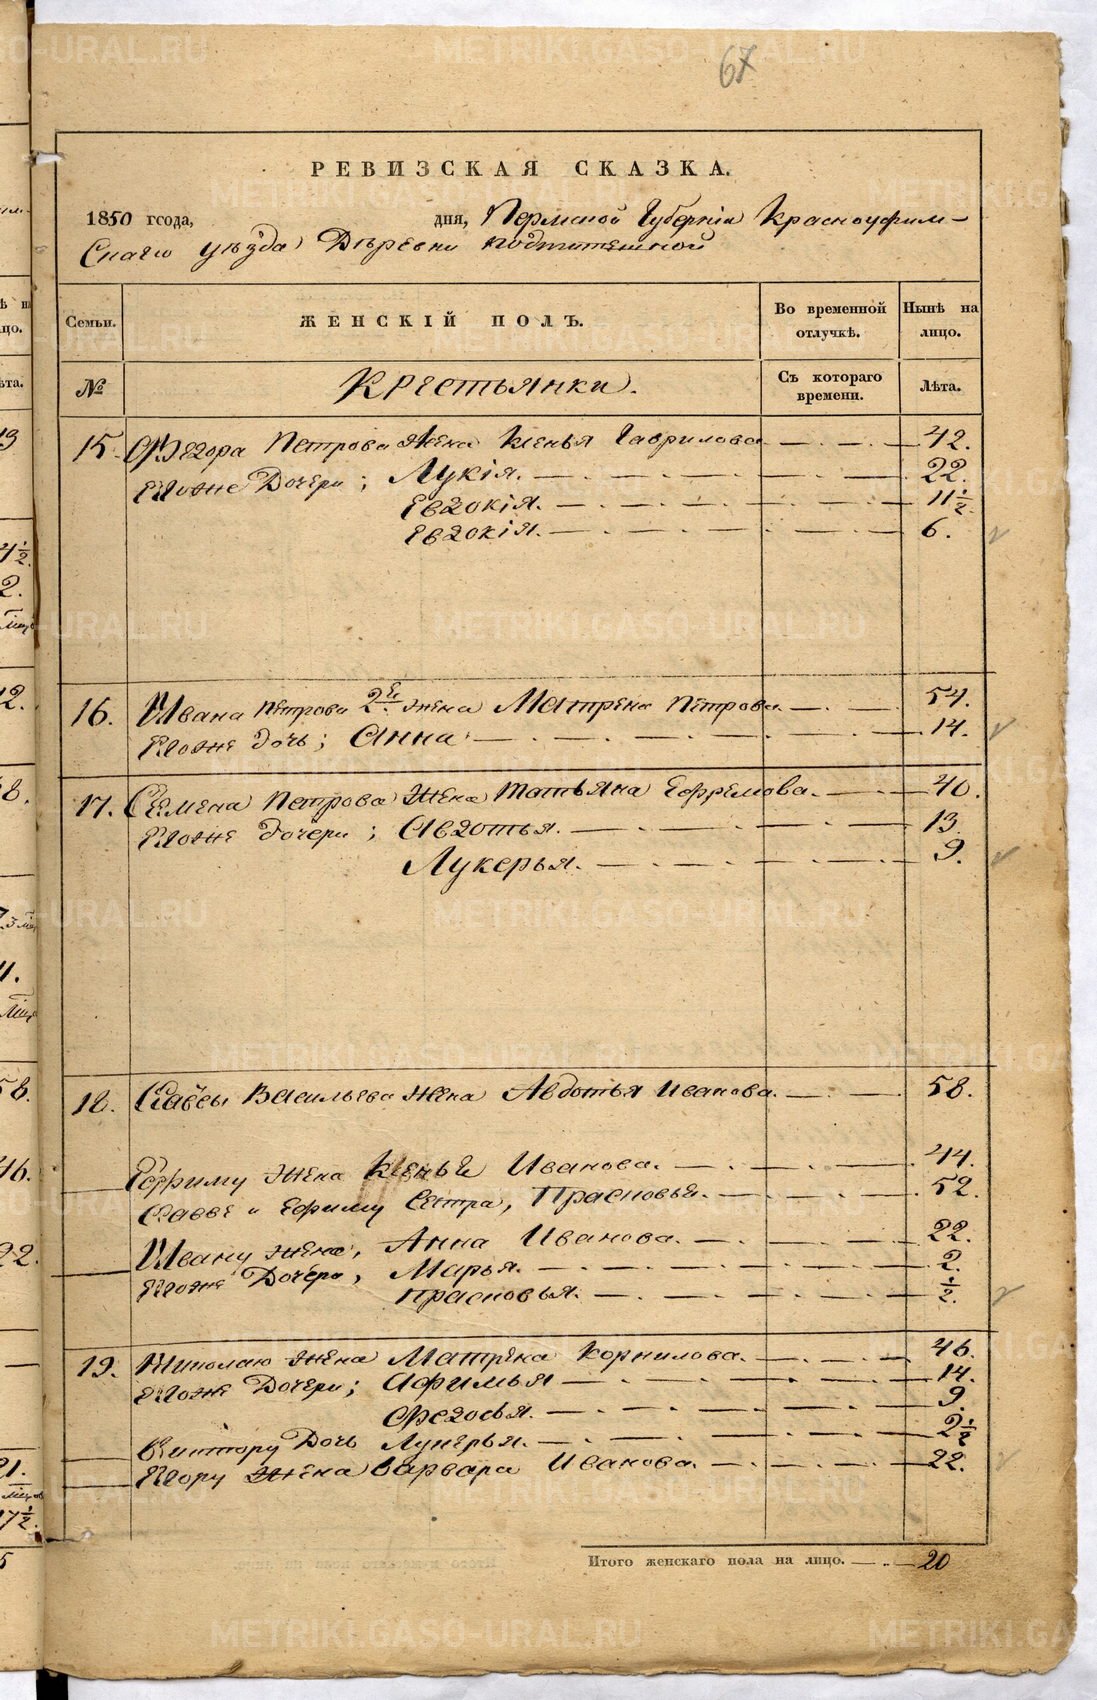 67
РЕВИЗСКАЯ СКАЗКА.
1850 гсода, дня, Пермской Губерніи Красноуфим-
Скаго уѣзда Дѣревни
Семьи. ЖЕНСКІЙ ПОЛЪ. Во временной отлучкѣ. Нынѣ на лицо.
№ Крестьянки. Съ котораго времени. Лѣта.
15. Ѳедора Петрова жена Ксенья Гаврилова 42.
Дочери; Лукія. 22.
Евдокія. 11½
Евдокія. 6.
16. Ивана Петрова 2я жена Матрена Петрова. 54.
дочь; Анна 14.
17. Семена Петрова жена Татьяна Ефремова. 40.
дочери; Авдотья. 13.
Лукерья. 9.
18. Саввы Васильева жена Авдотья Иванова. 58.
Ефиму жена Ксенья Иванова. 44.
Савве и Ефиму Сестра, Прасковья. 52.
Ивану жена, Анна Иванова. 22.
Дочери, Марья. 2.
Прасковья. ½.
19. Николаю жена Матрена Корнилова. 46.
Дочери; Афимья 14.
Ѳедосья. 9.
Виктору Дочь Лукерья. 2½
жена Варвара Иванова. 22.
Итого женскаго пола на лицо. 20
METRIKI.GASO-URAL.RU